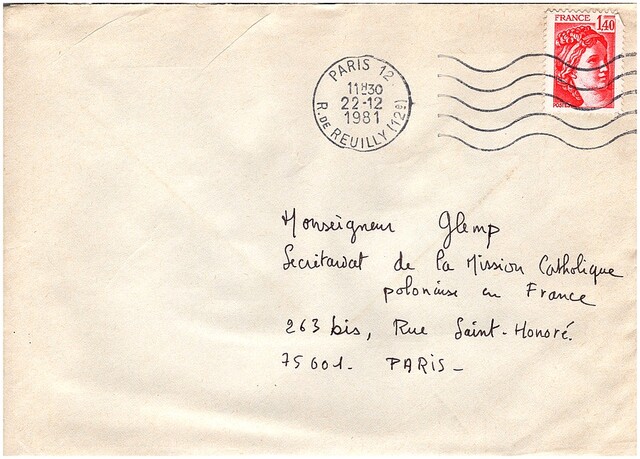 FRANCE 1,40
PARIS 12
11H30
22-12
1981
R. DE REUILLY (12e)
Monseigneur Glemp
Secrétariat de la Mission Catholique
polonaise en France
263 bis, Rue Saint-Honoré.
75001. PARIS_